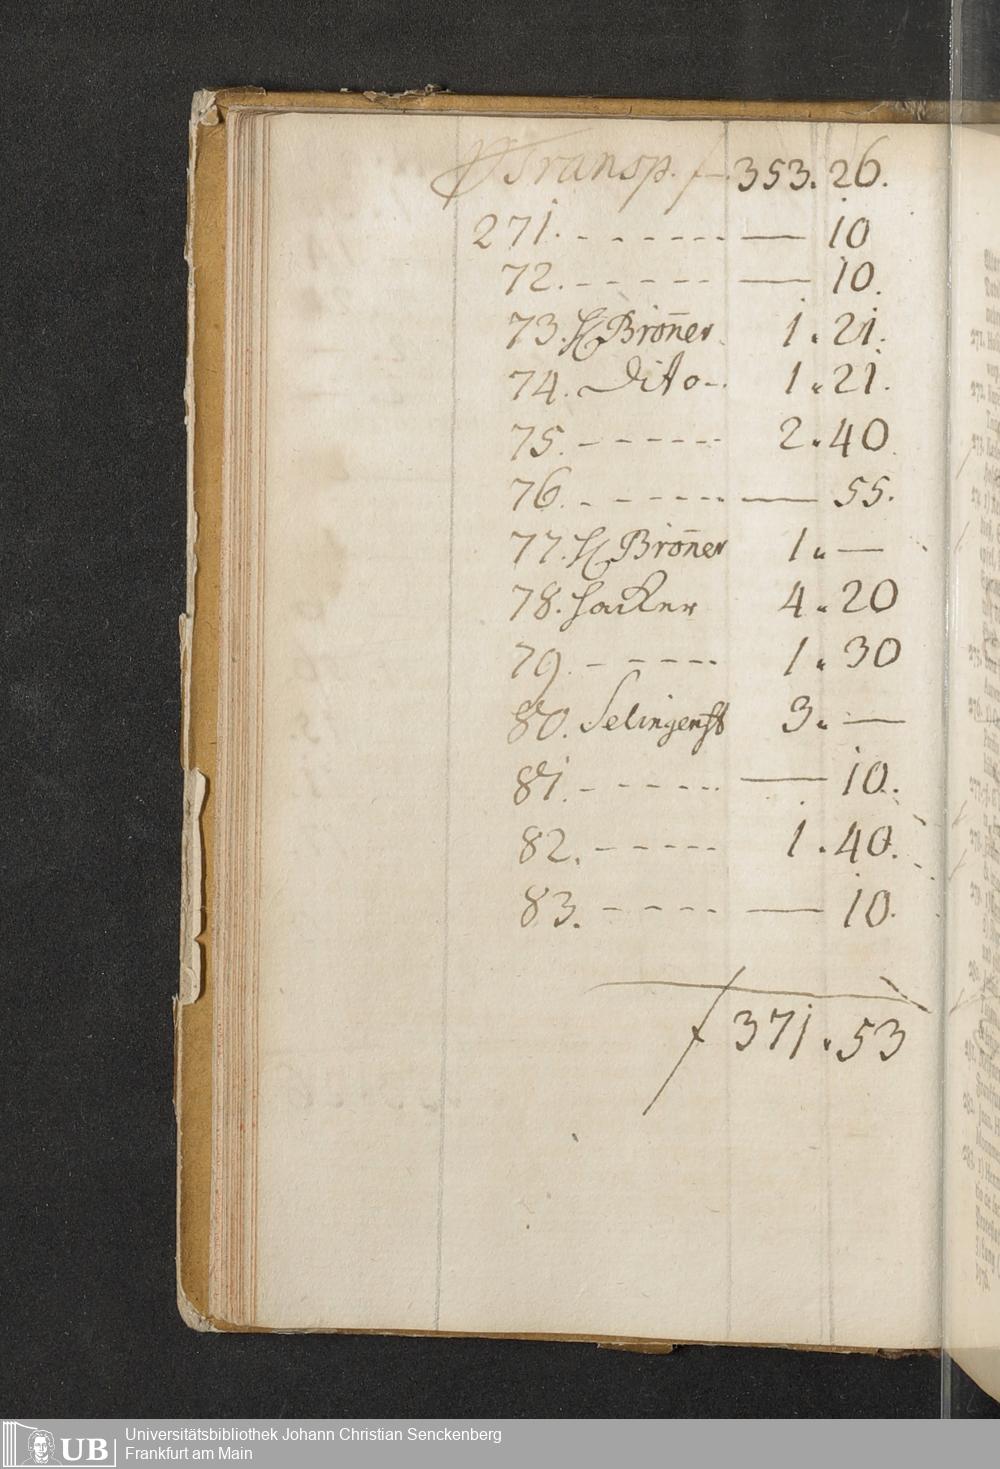 Transp. f 353. 26.
271. - - - - - - — 10
72. - - - - - — 10.
73. H. Broñer. 1. 21.
74. Dito -. 1. 21.
75. - - - - - 2. 40.
76. - - - - - — 55.
77. H. Broñer 1. —
78. Hacker 4. 20
79. - - - - - 1. 30
80. Selingenst 3. —
81. - - - - - — 10.
82. - - - - - 1. 40.
83. - - - - — 10.
f 371. 53
UB
Universitätsbibliothek Johann Christian Senckenberg
Frankfurt am Main